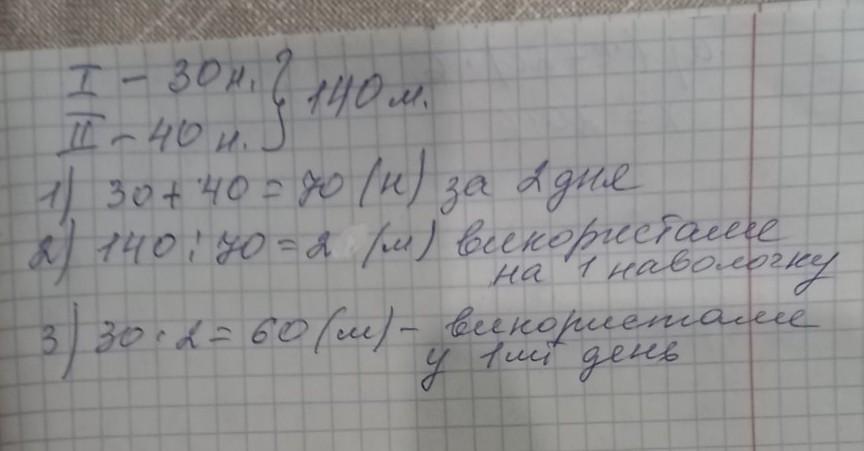 I - 30 н.
II - 40 н. } 140 м.
1) 30 + 40 = 70 (н) за 2 дня
2) 140 : 70 = 2 (м) використали
на 1 наволочку
3) 30 · 2 = 60 (м) - використали
у 1ий день